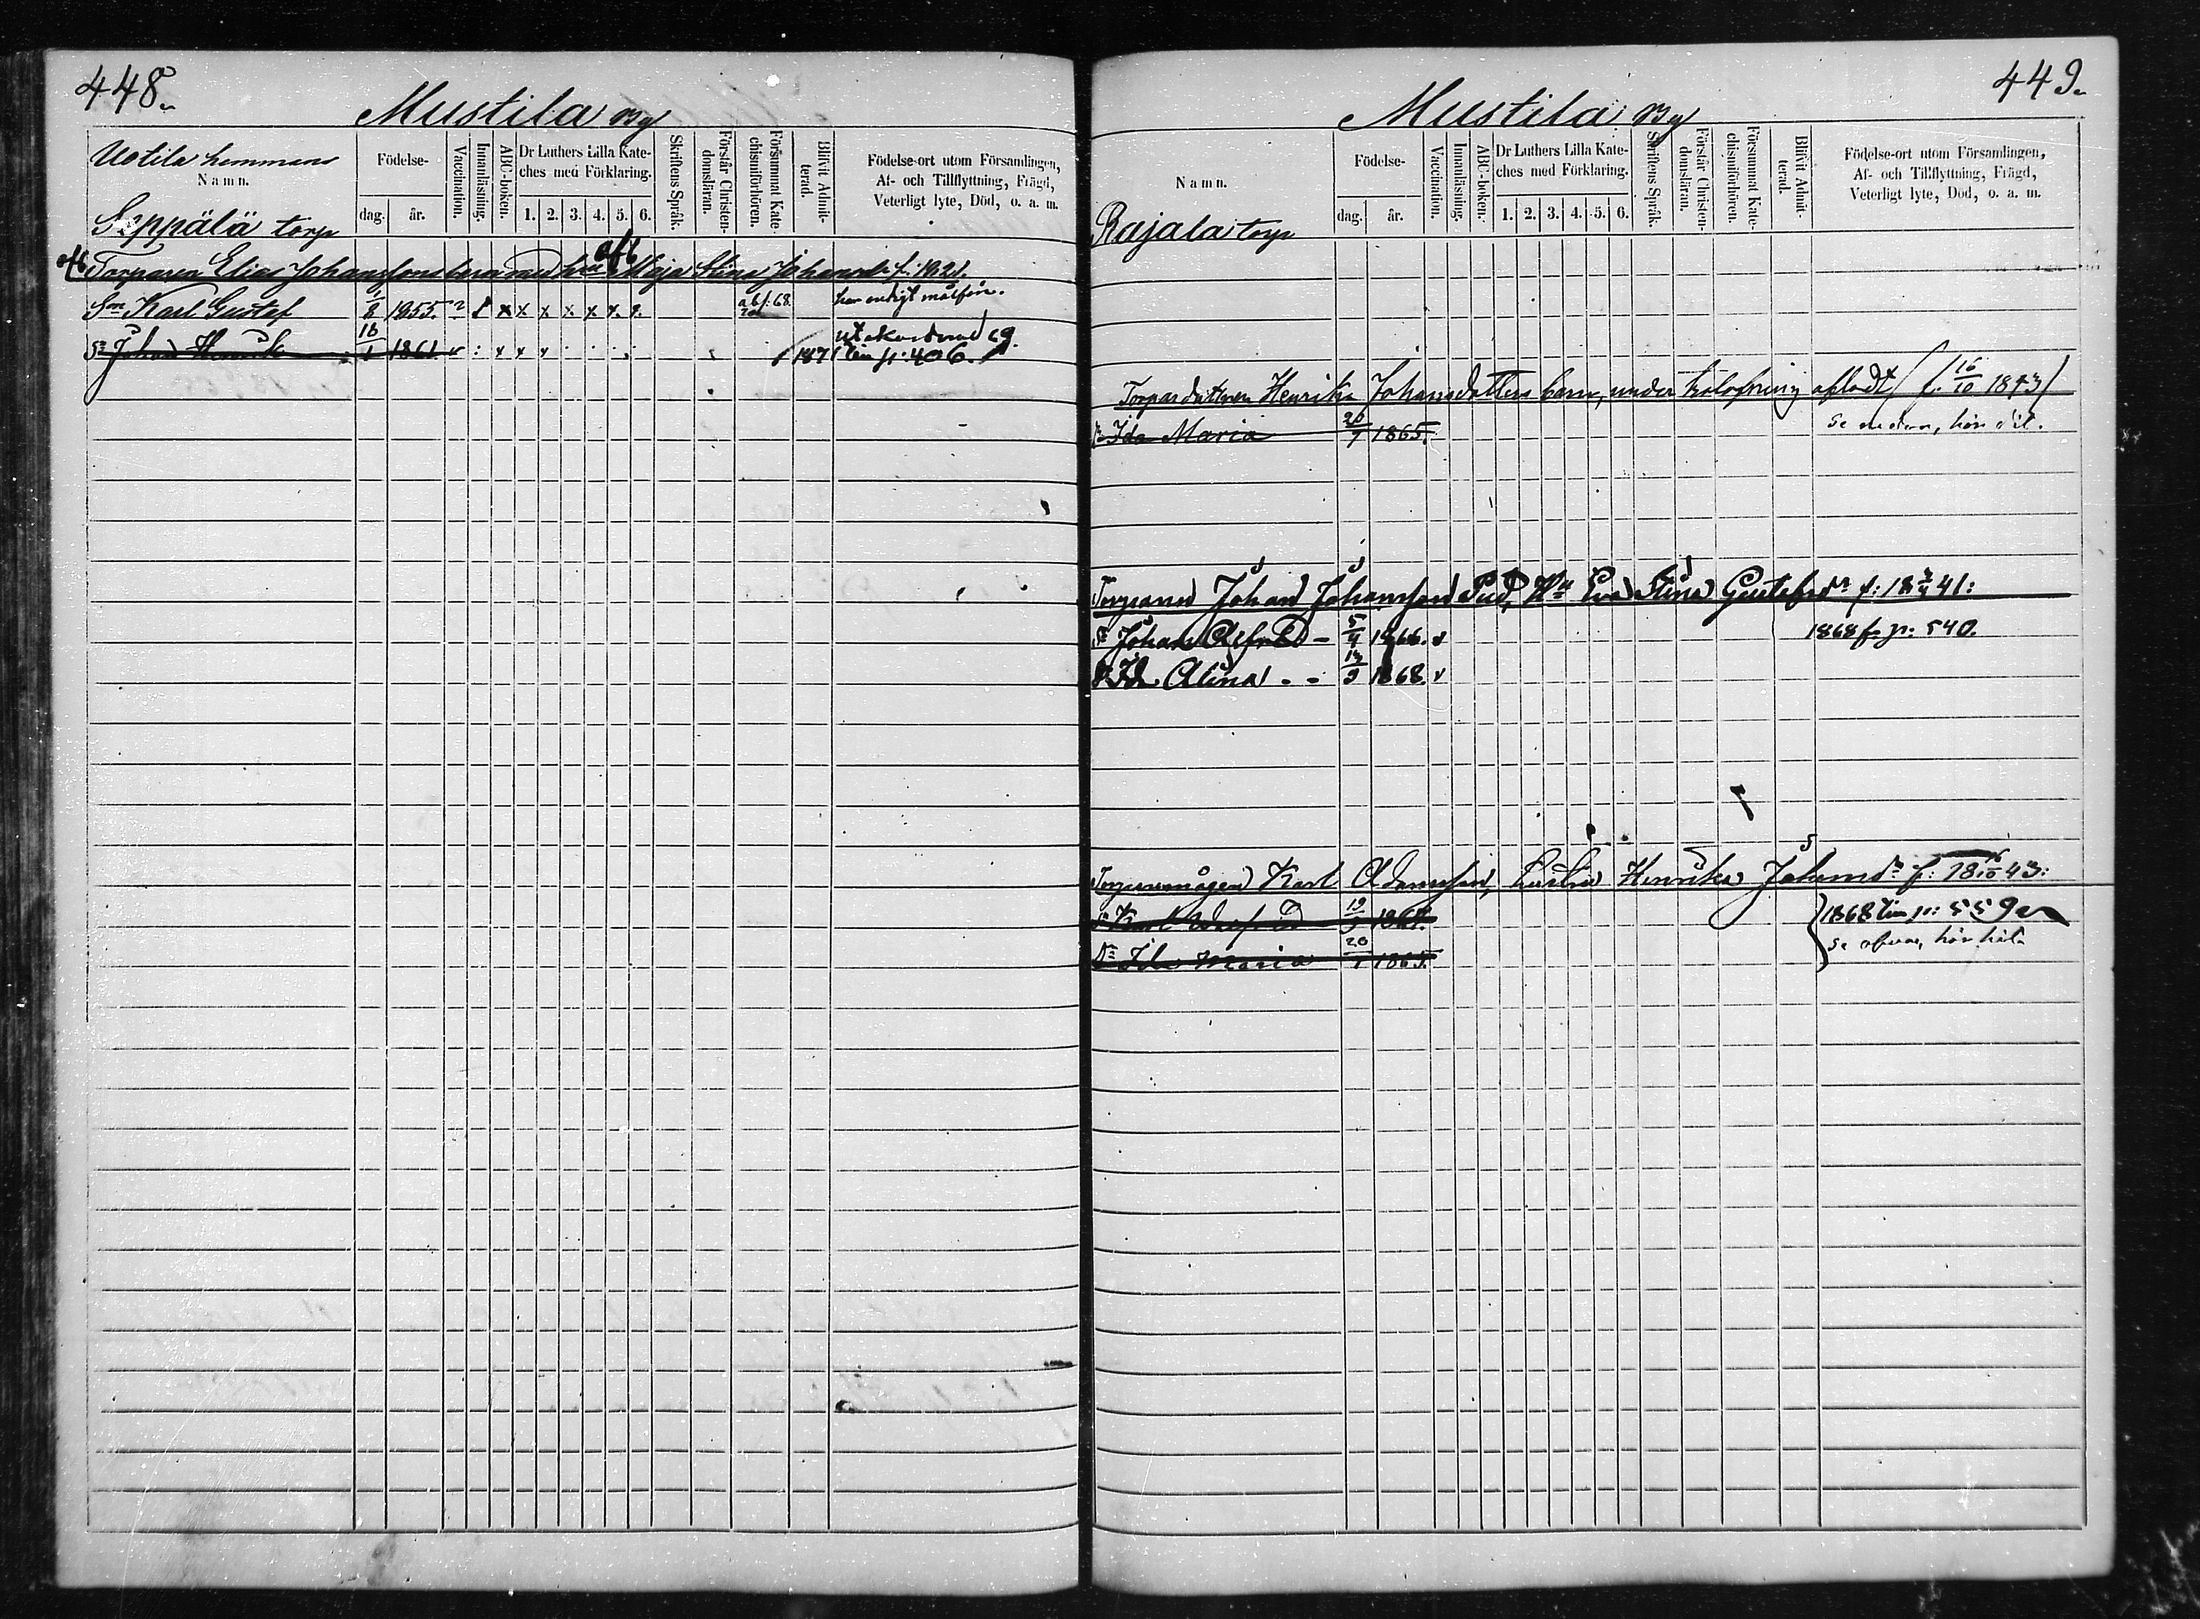 448.
Mustila By
Uotila hemmans
Namn.
Födelse-
dag.
år.
Vaccination.
Innanläsning.
ABC-boken.
Dr Luthers Lilla Kate-
ches med Förklaring.
1. 2. 3. 4. 5. 6.
Skriftens Språk.
Förstår Christen-
domsläran.
Försummat Kate-
chismiförhören.
Blifvit Admit-
terad.
Födelse-ort utom Församlingen,
Af- och Tillflyttning, Frägd,
Veterligt lyte, Död, o. a. m.
Seppälä torp
Torparen Elias Johanssons barn med Maja Stina Johansdr f: 1821.
Sn Karl Gustaf 1/8 1855. x x x x x x har otydligt målföre.
Sn Johan Henrik 16/1 1861 v x x x 1871 till p: 406.
449.
Mustila By
Namn.
Födelse-
dag.
år.
Vaccination.
Innanläsning.
ABC-boken.
Dr Luthers Lilla Kate-
ches med Förklaring.
1. 2. 3. 4. 5. 6.
Skriftens Språk.
Förstår Christen-
domsläran.
Försummat Kate-
chismiförhören.
Blifvit Admit-
terad.
Födelse-ort utom Församlingen,
Af- och Tillflyttning, Frägd,
Veterligt lyte, Död, o. a. m.
Rajala torp
Torpardottren Henrika Johansdotters barn, under trolofning afladt (f. 16/10 1843)
Dr Ida Maria 20/7 1865. se nedan, hör dit.
Torparen Johan Johansson Hu Eva Stina Gustafsdr f: 18 41:
Sn Johan Alfred - 5/4 1866. v 1868 fr. p: 540.
Dr Ida Alina - - 13/9 1868. v
Torparemågen Karl Adamsson, hustru Henrika Johansdr f: 18 16/10 43:
Sn Karl 19/9 1867. 1868 till p: 559
Dr Ida Maria 20/7 1865. se ofvan, hör hit.